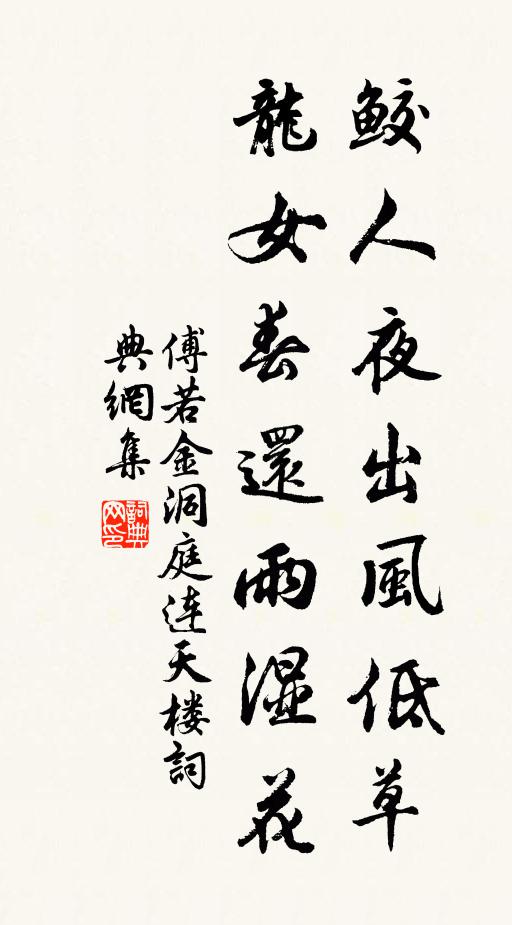 鮫人夜出風低草
龍女春還雨湿花
傅若金洞庭连天楼詞
典網集
詞典网印